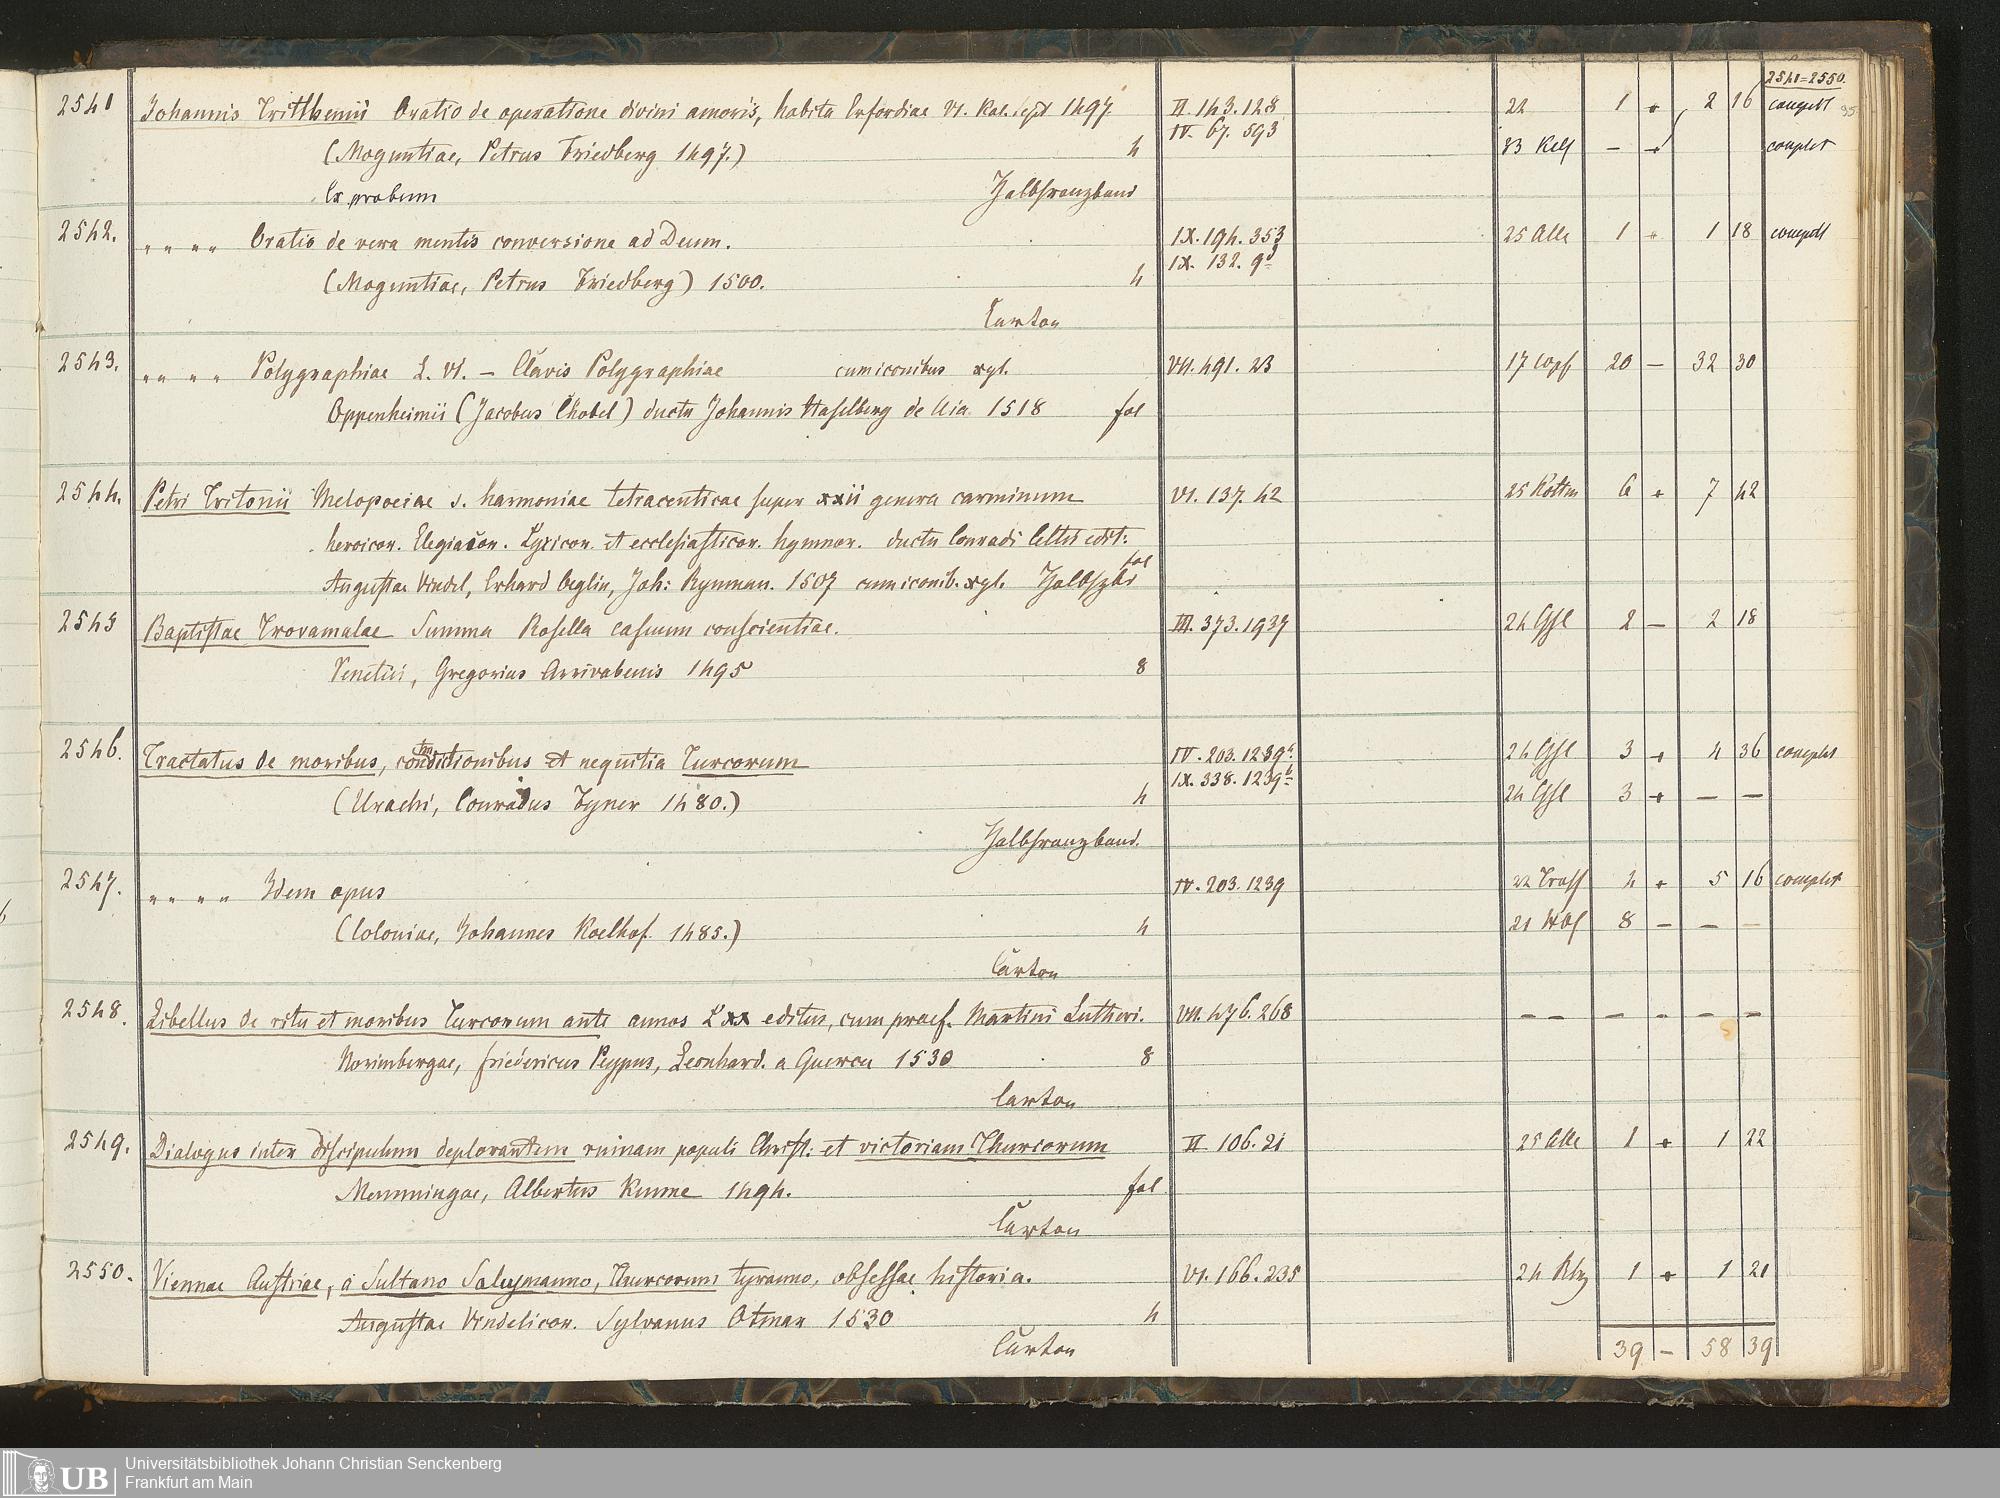 2541=2550.
2541 Johannis Tritthemii Oratio de operatione divini amoris, habita Erfordiae VI. Kal. sept 1497. II. 143. 128 22 1 + 2 16 complt 95
IV. 67. 593
(Moguntiae, Petrus Friedberg 1497.) 4 83 Kelf — + complet
Ex probum Halbfranzband
2542. " " " " Oratio de vera mentis conversione ad Deum. IX. 194. 353 25 Alle 1 + 1 18 complt
IX. 132. 9
(Moguntiae, Petrus Friedberg) 1500. 4
Carton
2543. " " " " Polygraphiae L. VI. — Clavis Polygraphiae cum iconibus xyl. VII. 491. 23 17 20 — 32 30
Oppenheimii (Jacobus Chobel) ductu Johannis Haselberg de Aia 1518 fol
2544. Petri Tritonii Melopoeiae s. harmoniae tetracenticae super xxii genera carminum VI. 137. 42 25 Rottm 6 + 7 42
heroicor. Elegiacor. Lyricor. et ecclesiasticor. hymnor. ductu Conradi Celtis edit:
Augustae Vindel, Erhard Oeglin, Joh: Rynman. 1507 cum iconib. xyl. fol
2545 Baptistae Trovamalae Summa Rosella casuum conscientiae. III. 373. 1937 24 Gsl 2 — 2 18
Venetiis, Gregorius Arrivabenis 1495 8
2546. Tractatus de moribus, conditionibus et nequitia Turcorum IV. 203. 1239a. 24 Gsl 3 + 4 36 complet
IX. 338. 1239b
(Urachi, Conradus Fyner 1480.) 4 24 Gsl 3 + — —
Halbfranzband.
2547. " " " " Idem opus IV. 203. 1239 22 Tross 4 + 5 16 complet
(Coloniae, Johannes Koelhof. 1485.) 4 21 8 — — —
Carton
2548. Libellus de ritu et moribus Turcorum ante annos Lxx editus, cum praef. Martini Lutheri. VII. 476. 268 — — — — — —
Norimbergae, Fridericus Peypus, Leonhard. a Quercu 1530 8
Carton
2549. Dialogus inter discipulum deplorantem ruinam populi Christ: et victoriam Thurcorum II. 106. 21 25 Alle 1 + 1 22
Memmingae, Albertus Kunne 1494. fol
Carton
2550. Viennae Austriae, a Sultano Saleymanno, Thurcorum tyranno, obsessae historia. VI. 166. 235 24 1 + 1 21
Augustae Vindelicor. Sylvanus Otmar 1530 4
Carton 39 — 58 39
UB
Universitätsbibliothek Johann Christian Senckenberg
Frankfurt am Main